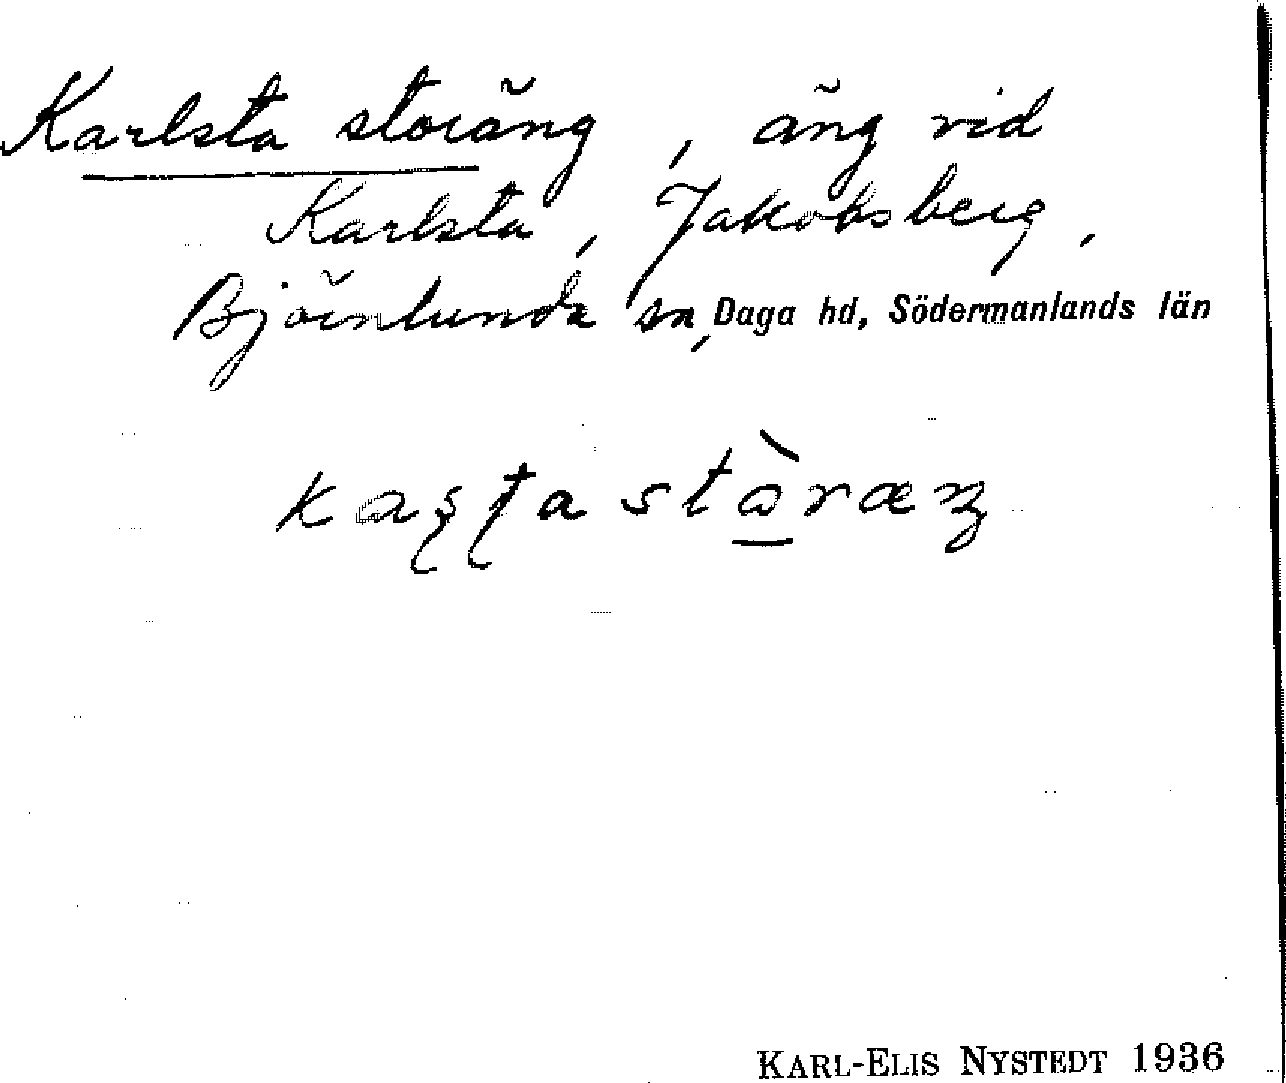 Karlsta storäng, äng vid
Karlsta, Jakobsberg,
Björnlunda sn, Daga hd, Södermanlands län
kaʂʈa stɷ̀ræŋ
KARL-ELIS NYSTEDT 1936